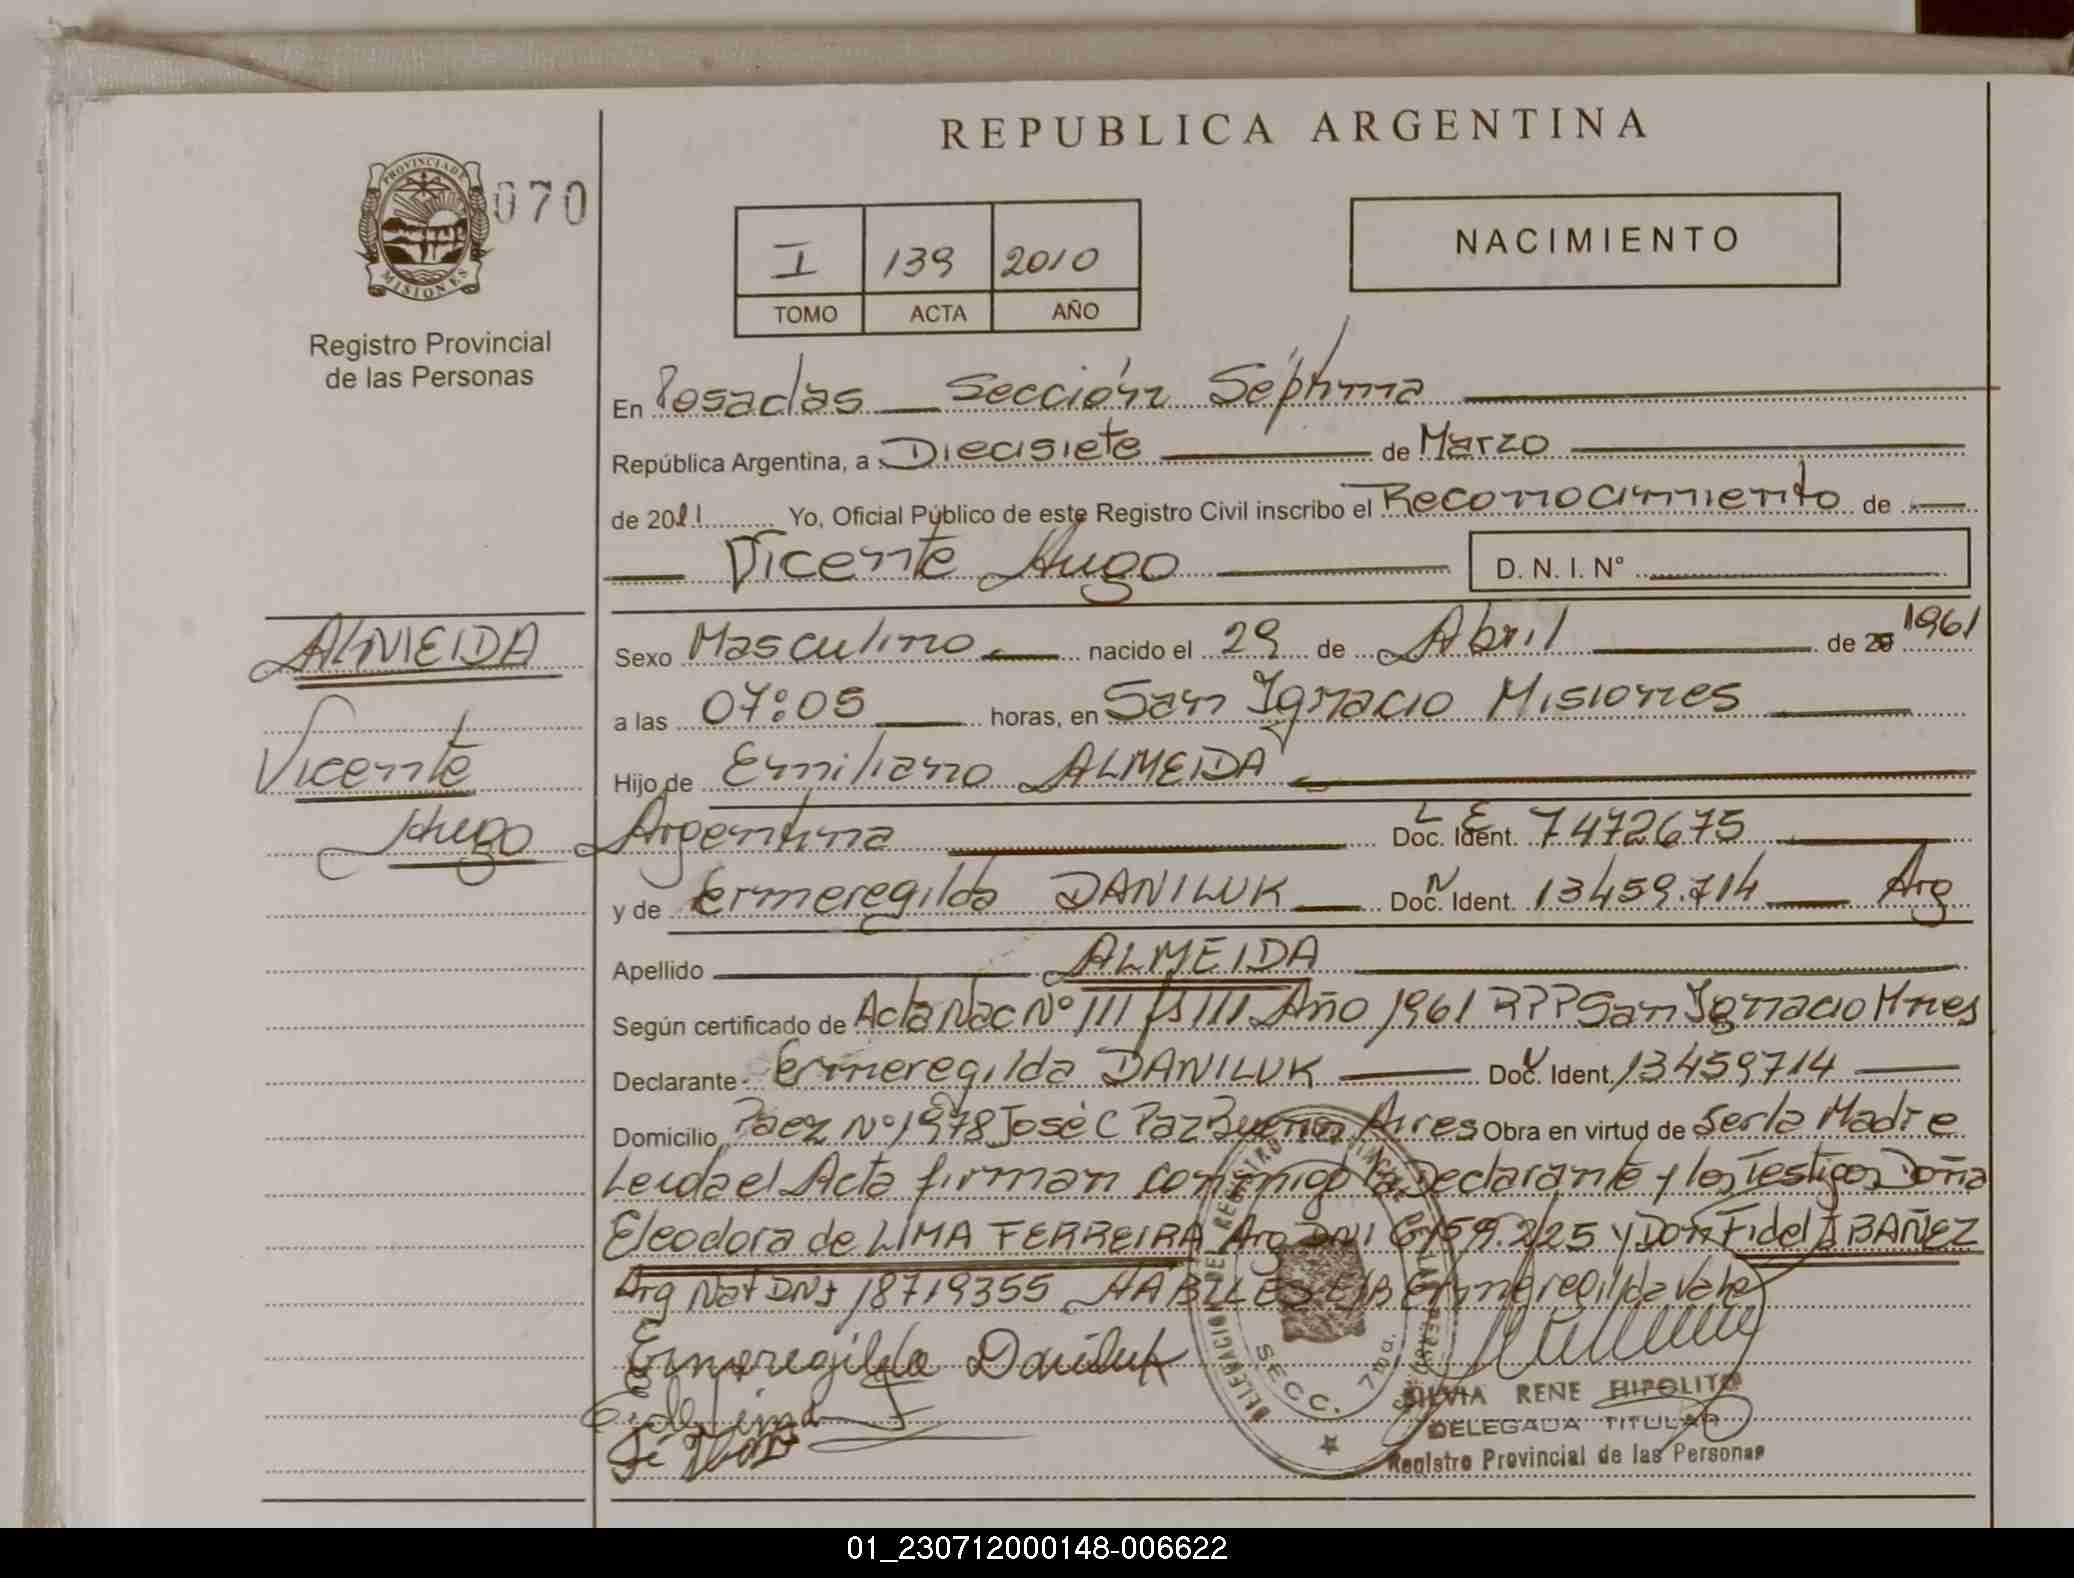 REPUBLICA ARGENTINA
PROVINCIA DE
MISIONES
070
Registro Provincial
de las Personas
I 139 2010
TOMO ACTA AÑO
NACIMIENTO
En Posadas Sección Séptima
República Argentina, a Diecisiete de Marzo
de 2011 Yo, Oficial Público de este Registro Civil inscribo el Reconocimiento de
Vicente Hugo D. N. I. N°
ALMEIDA
Vicente
Hugo
Sexo Masculino nacido el 29 de Abril de 20 1961
a las 07:05 horas, en San Ignacio Misiones
Hijo de Emiliano ALMEIDA
Argentina Doc. Ident. L E 7472675
y de Ermeregilda DANILUK Doc. Ident. 13459.714 Arg
Apellido ALMEIDA
Según certificado de Acta Nac N° 111 fs 111 Año 1961 RPP San Ignacio Mnes
Declarante Ermeregilda DANILUK Doc. Ident. 13459714
Domicilio Paez N° 1978 José C Paz Buenos Aires Obra en virtud de Ser la Madre
Leida el Acta firman conmigo la Declarante y los Testigos Doña
Eleodora de LIMA FERREIRA Arg DNI 6159.225 y Don Fidel IBAÑEZ
Arg Nat DNI 18719355 HABILES E/B Ermeregilda Vale
Ermeregilda Daniluk
SECC. 7ma.
SILVIA RENE HIPOLITO
DELEGADA TITULAR
Registro Provincial de las Personas
01_230712000148-006622